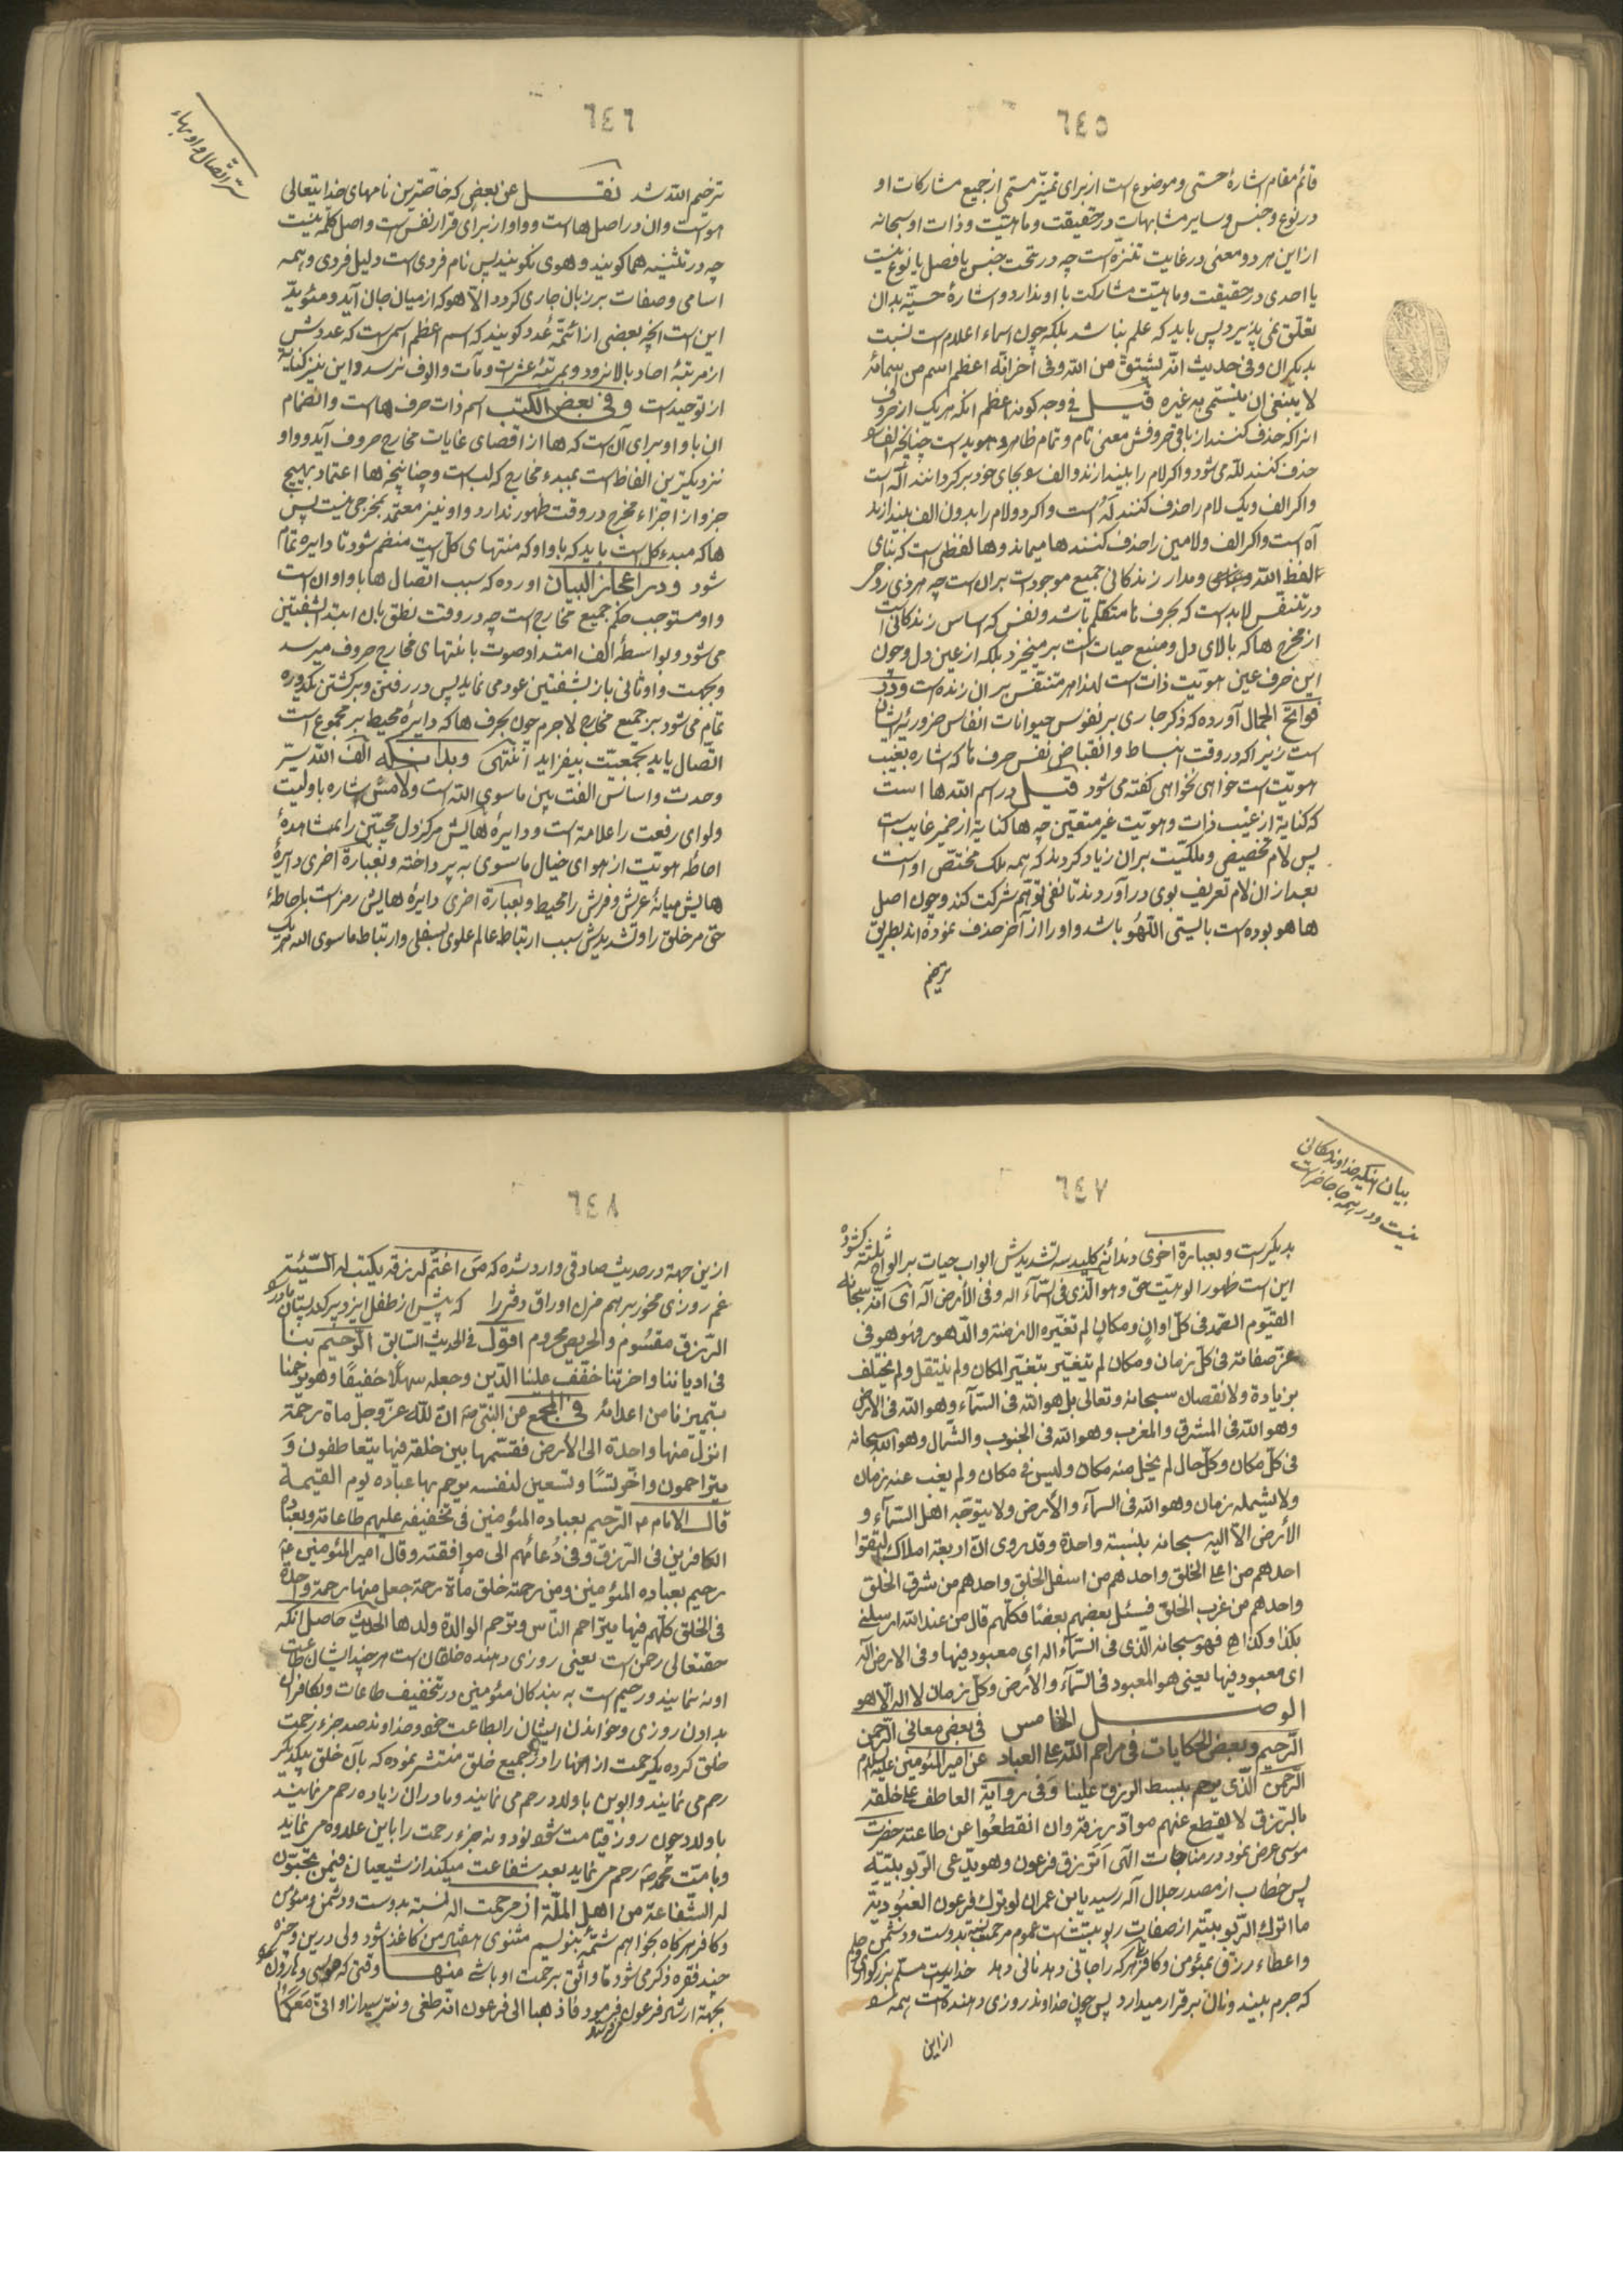 ٦٤٥
قائم مقام اشارهٔ حسّی و موضوع است از برای تمیّز مستمی از جمیع مشارکات او
در نوع و جنس و سایر مشابهات در حقیقت و ماهیّت و ذات او سبحانه
از این هر دو معنی در غایت تنزّه است چه در تحت جنس یا فصل یا نوع نیست
یا احدی در حقیقت و ماهیّت مشارکت با او ندارد و اشارهٔ حسیّه بدان
تعلّق نمی پذیرد پس باید که علم بنا شد بلکه چون اسماء اعلام است نسبت
بدیکران و فی حدیث انّه یشتقّ من اللّه و فی اخر انّه اعظم اسم من اسمائه
لا ینبغی ان یتسمّی به غیره قیل فی وجه کونه اعظم انکه هر یک از حروف
انرا که حذف کنند از باقی حروفش معنی تام و تمام ظاهر و هویداست چنانچه الف
حذف کنند للّه می شود و اکر لام را بیندازند و الف بجای خود برکردانند آله است
و اکر الف و یک لام را حذف کنند لَهُ است و اکر دو لام را بدون الف بیندازند
آه است و اکر الف و لامین را حذف کنند ها میماند و ها لفظی است که بنای
لفظ اللّه و مدار زندکانی جمیع موجودات بران است چه هر ذی روح
در تنفّس لابد است که بحرف ها متکلّم باشد و نفس که اساس زندکانی است
از مخرج ها که بالای دل و منبع حیات است بر میخیزد بلکه از عین دل و چون
این حرف عین هویّت ذات است لهذا هر متنفّس بر ان زنده است و در
فواتح الجمال آورده که ذکر جاری بر نفوس حیوانات انفاس ضروریه ایشان
است زیرا که در وقت انبساط و انقباض نفس حرف ها که اشاره بغیب
هویّت است خواهی نخواهی کفته می شود قیل در اسم اللّه ها است
که کنایة از غیب ذات و هویّت غیر متعیّن چه ها کنایة از ضمیر غایب است
پس لام تخصیص و ملکیّت بر ان زیاد کردند که همه ملک مختصّ او است
بعد از ان لام تعریف بوی در آوردند تا نفی توهّم شرکت کند و چون اصل
ها هو بوده است بایستی اللّهُو باشد واو را از آخر حذف نموده اند بطریق
ترخیم
٦٤٦
سرّ اتّصال واو بهاء
ترخیم اللّه شد نقل عن بعض که خاصّترین نامهای خدایتعالی
هو است و ان در اصل ها است و واو از برای قرار نفس است و اصل کلمه نیست
چه در تثنیه هما کویند و هوی نکویند پس نام فردی است دلیل فردی و همه
اسامی و صفات بر زبان جاری کردد الّا هو که از میان جان آید و مئویّد
این است انچه بعضی از ائمّه عدد کویند که اسم اعظم اسمی است که عددش
از مرتبهٔ احاد بالا نرود و بمرتبهٔ عشرات و مآت و الوف نرسد و این نیز کنایه
از توحید است و فی بعض الکتب اسم ذات حرف ها است و انضمام
ان با واو برای آن است که ها از اقصای غایات مخارج حروف آید و واو
نزدیکترین الفاظ است بمبدء مخارج که لب است و چنانچه ها اعتماد بهیچ
جزو از اجزاء مخرج در وقت ظهور ندارد واو نیز معتمد بمخرجی نیست پس
ها که مبدء کل است باید که با واو که منتهای کلّ است منضم شود تا دایره تمام
شود و در اعجاز البیان اورده که سبب اتصال ها با واو ان است
واو مستوجب حکم جمیع مخارج است چه در وقت نطق بان ابتد الشفتین
می شود و بواسطهٔ الف امتداد صوت با نتهای مخارج حروف میرسد
و بجهت واو ثانی باز بشفتین عود می نماید پس در رفتن و برکشتن یکدوره
تمام می شود بر جمیع مخارج لاجرم چون بحرف ها که دایرهٔ محیط بر مجموع است
اتّصال یابد بجمعیّت بیفزاید انتهی و بدانکه الف اللّه سرّ
وحدت و اساس الفت بین ماسوی اللّه است و لامش اشاره باولیت
ولوای رفعت را علامة است و دایرهٔ هایش مرکز دل محبّین را بمشاهدهٔ
احاطهٔ هویّت از هوای خیال ماسوی به پرداخته و بعبارة اخری دایرهٔ
هایش میانهٔ عرش و فرش را محیط و بعبارة اخری دایرهٔ هایش رمز است باحاطهٔ
حقّ مر خلق را و تشدیدش سبب ارتباط عالم علوی بسفلی و ارتباط ماسوی اللّه هر یک
٦٤٧
بیان اینکه خداوند مکانی
نیست و در همه جا حاضر است
بدیکر است و بعبارة اخری دندانهٔ کلید سه تشدیدش ابواب حیات بر الواح ثلثه کشوده
این است ظهور الوهیّت حق و هو الّذی فی السّمآء اله و فی الأرض آله ای انّه سبحانه
القیّوم الصّمد فی کلّ اوان و مکان لم تغیّره الازمنة و الدّهور فهو هو فی
عزّ صفاته فی کلّ زمان و مکان لم یتغیّر بتغیّر المکان و لم ینتقل و لم یختلف
بزیادة و لا نقصان سبحانه و تعالی بل هو اللّه فی السّمآء و هو اللّه فی الارض
و هو اللّه فی المشرق و المغرب و هو اللّه فی الجنوب و الشّمال و هو اللّه سبحانه
فی کلّ مکان و کلّ حال لم یخل منه مکان و لیس فی مکان و لم یغب عنه زمان
و لا یشمله زمان و هو اللّه فی السمآء و الأرض و لا یتوجّه اهل السّمآء و
الأرض الّا الیه سبحانه بلنسبة واحدة و قد روی انّ اربعة املاک التقوا
احدهم من اعلی الخلق و احدهم من اسفل الخلق و احدهم من شرق الخلق
و احدهم من غرب الخلق فسئل بعضهم بعضًا فکلّهم قال من عند اللّه ارسلنی
بکذا و کذا اهـ فهو سبحانه الّذی فی السّمآء اله ای معبود فیها و فی الارض اله
ای معبود فیها یعنی هو المعبود فی السّمآء و الأرض و کلّ زمان لا اله الّا هو
الوصل الخامس فی بعض معانی الرّحمن
الرّحیم و بعض الحکایات فی مراحم اللّه علی العباد عن امیر المئومنین علیه السلام
الرّحمن الّذی یرحم ببسط الرزق علینا و فی روایة العاطف علی خلقه
بالرّزق لا یقطع عنهم موادّ رزقه و ان انقطعوا عن طاعته حضرت
موسی عرض نمود در مناجات الهی اترزق فرعون و هو یدّعی الرّبوبیّة
پس خطاب از مصدر جلال آله رسید یابن عمران لو ترک فرعون العبودیّة
ما اترک الرّبوبیّة از صفات ربوبیّت است عموم مرحمت نسبة بدوست و دشمن
و اعطاء رزق بمئومن و کافر هر که را جانی دهد نانی دهد خدایست مسلّم بزرکواری و حلم
که جرم بیند و نان برقرار میدارد پس چون خداوند روزی دهنده است همه
از این
٦٤٨
ازین جهة در حدیث صادقی وارد شده که من اغتمّ لرزقه یکتب له السّیّئة
غم روزی مخور برهم مزن اوراق دفتر را که پیش از طفل ایزد پر کند پستان مادر را
الرّزق مقسُوم و الحریص محروم اقول فی الحدیث السّابق الرّحیم بنا
فی ادیاننا و اخرتنا خفّف علینا الدّین و جعله سهلًا خفیفًا و هو یرحمنا
بتمیزنا من اعدائه فی المجمع عن النبی ص انّ للّه عزّ و جلّ ماة رحمة
انزل منها واحدة الی الأرض فقسّمها بین خلقه فیها یتعاطفون و
یتراحمون و اخّر تسعًا و تسعین لنفسه یرحم بها عباده یوم القیمة
قال الامام ع الرّحیم بعباده المئومنین فی تخفیفه علیهم طاعاته و بعباده
الکافرین فی الرّزق و فی دُعائهم الی موافقته و قال امیر المئومنین ع
رحیم بعباده المئومنین و من رحمته خلق مأة رحمة جعل منها رحمة واحدة
فی الخلق کلّهم فیها یتراحم النّاس و ترحم الوالدة ولدها الحدیث حاصل انکه
حقتعالی رحمن است یعنی روزی دهنده خلقان است هر چند ایشان طاعت
او نه نمایند و رحیم است به بندکان مئومنین در تخفیف طاعات و بکافران
بدادن روزی و خواندن ایشان را بطاعت خود و خداوند صد جزء رحمت
خلق کرده یکرحمت از انها را در جمیع خلق منتشر نموده که بآن خلق بیکدیکر
رحم می نمایند و ابوین باولاد رحم می نمایند و مادران زیاده رحم می نمایند
باولاد چون روز قیامت شود نود و نه جزء رحمت را باین علاوه می نماید
و بامّت محمد ص رحم می نماید بعد شفاعت میکند از شیعیان فیمن تحبّون
له الشّفاعة من اهل الملّة از مرحمت اله نسبة بدوست و دشمن و مئومن
و کافر هر کاه بخواهم شمّهٔ بنویسم مثنوی هفتاد من کاغذ شود ولی درین جزوه
چند فقره ذکر می شود تا واثق برحمت او باشے منها وقتی که موسی و هارون
بجهة ارشاد فرعون فرمود فاذهبا الی فرعون انّه طغی و نترسید از او انّنی معکما